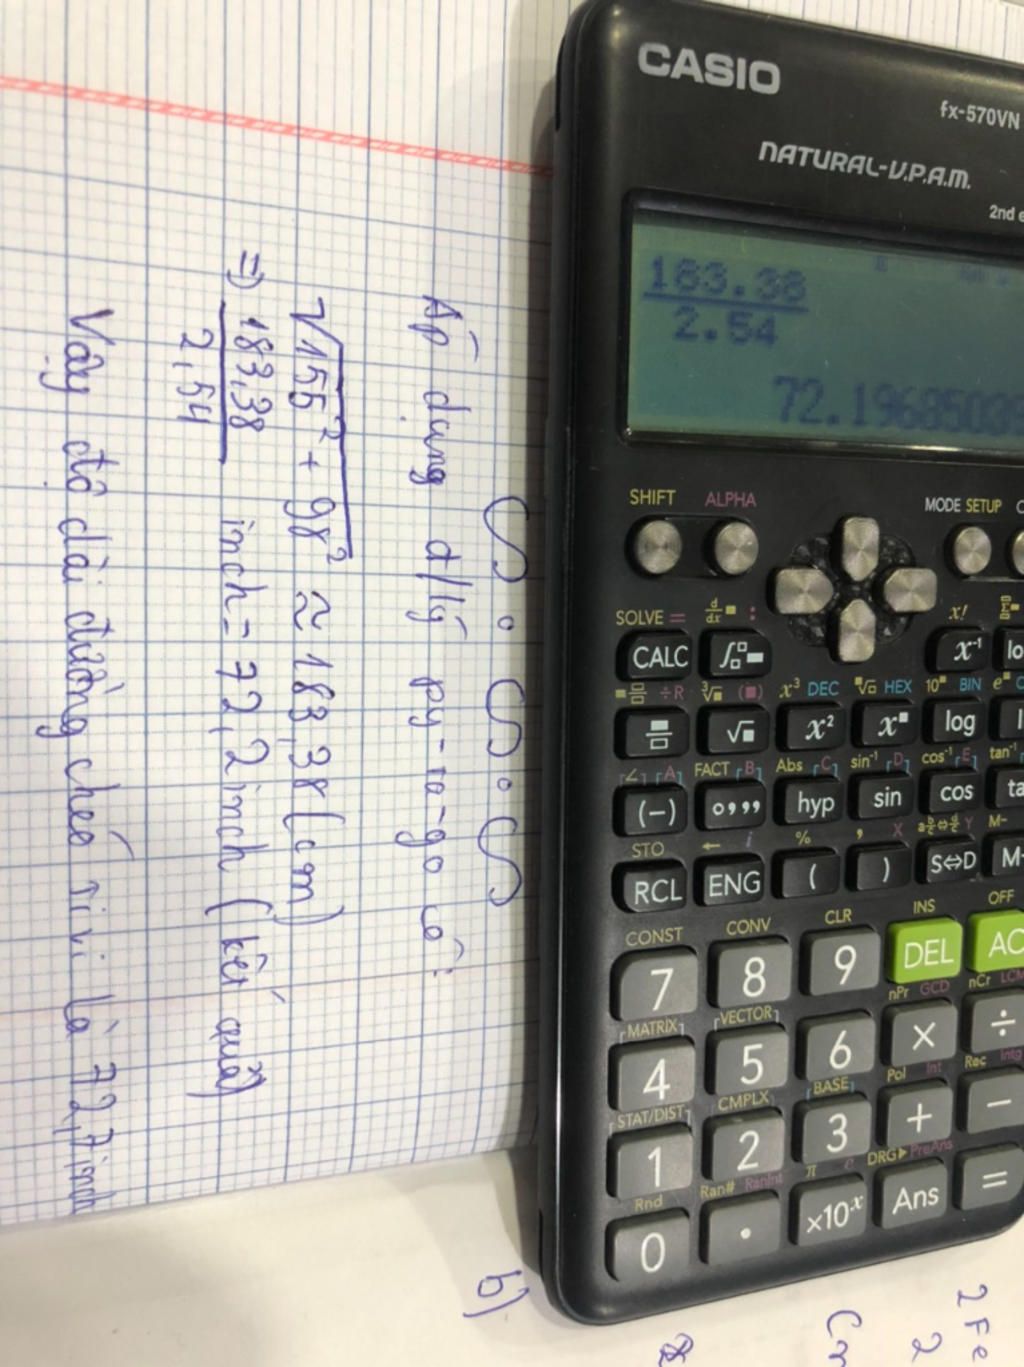 Áp dụng đ/lý py-ta-go có:
√155² + 98² ≈ 183,38 (cm)
=> 183,38
2,54
inch = 72,2 inch (kết quả)
Vậy độ dài đường chéo tivi là 72,7 inch
b)
2Fe
2
CASIO
fx-570VN
NATURAL-V.P.A.M.
2nd e
183.38
2.54
72.19685039
SHIFT ALPHA MODE SETUP
SOLVE = d/dx : x!
CALC x⁻¹ lo
÷R ³√ x³ DEC HEX 10 BIN e
√ x² x log
∠ A FACT B Abs C sin⁻¹ D cos⁻¹ E tan⁻¹
(−) hyp sin cos ta
STO ← i % , X Y M−
RCL ENG ( ) S⇔D M
CONST CONV CLR INS OFF
7 8 9 DEL AC
MATRIX VECTOR nPr GCD nCr LCM
4 5 6 × ÷
STAT/DIST CMPLX BASE Pol Int Rec Intg
1 2 3 + −
Rnd Ran# RanInt π e DRG▶ PreAns
0 . ×10ˣ Ans =